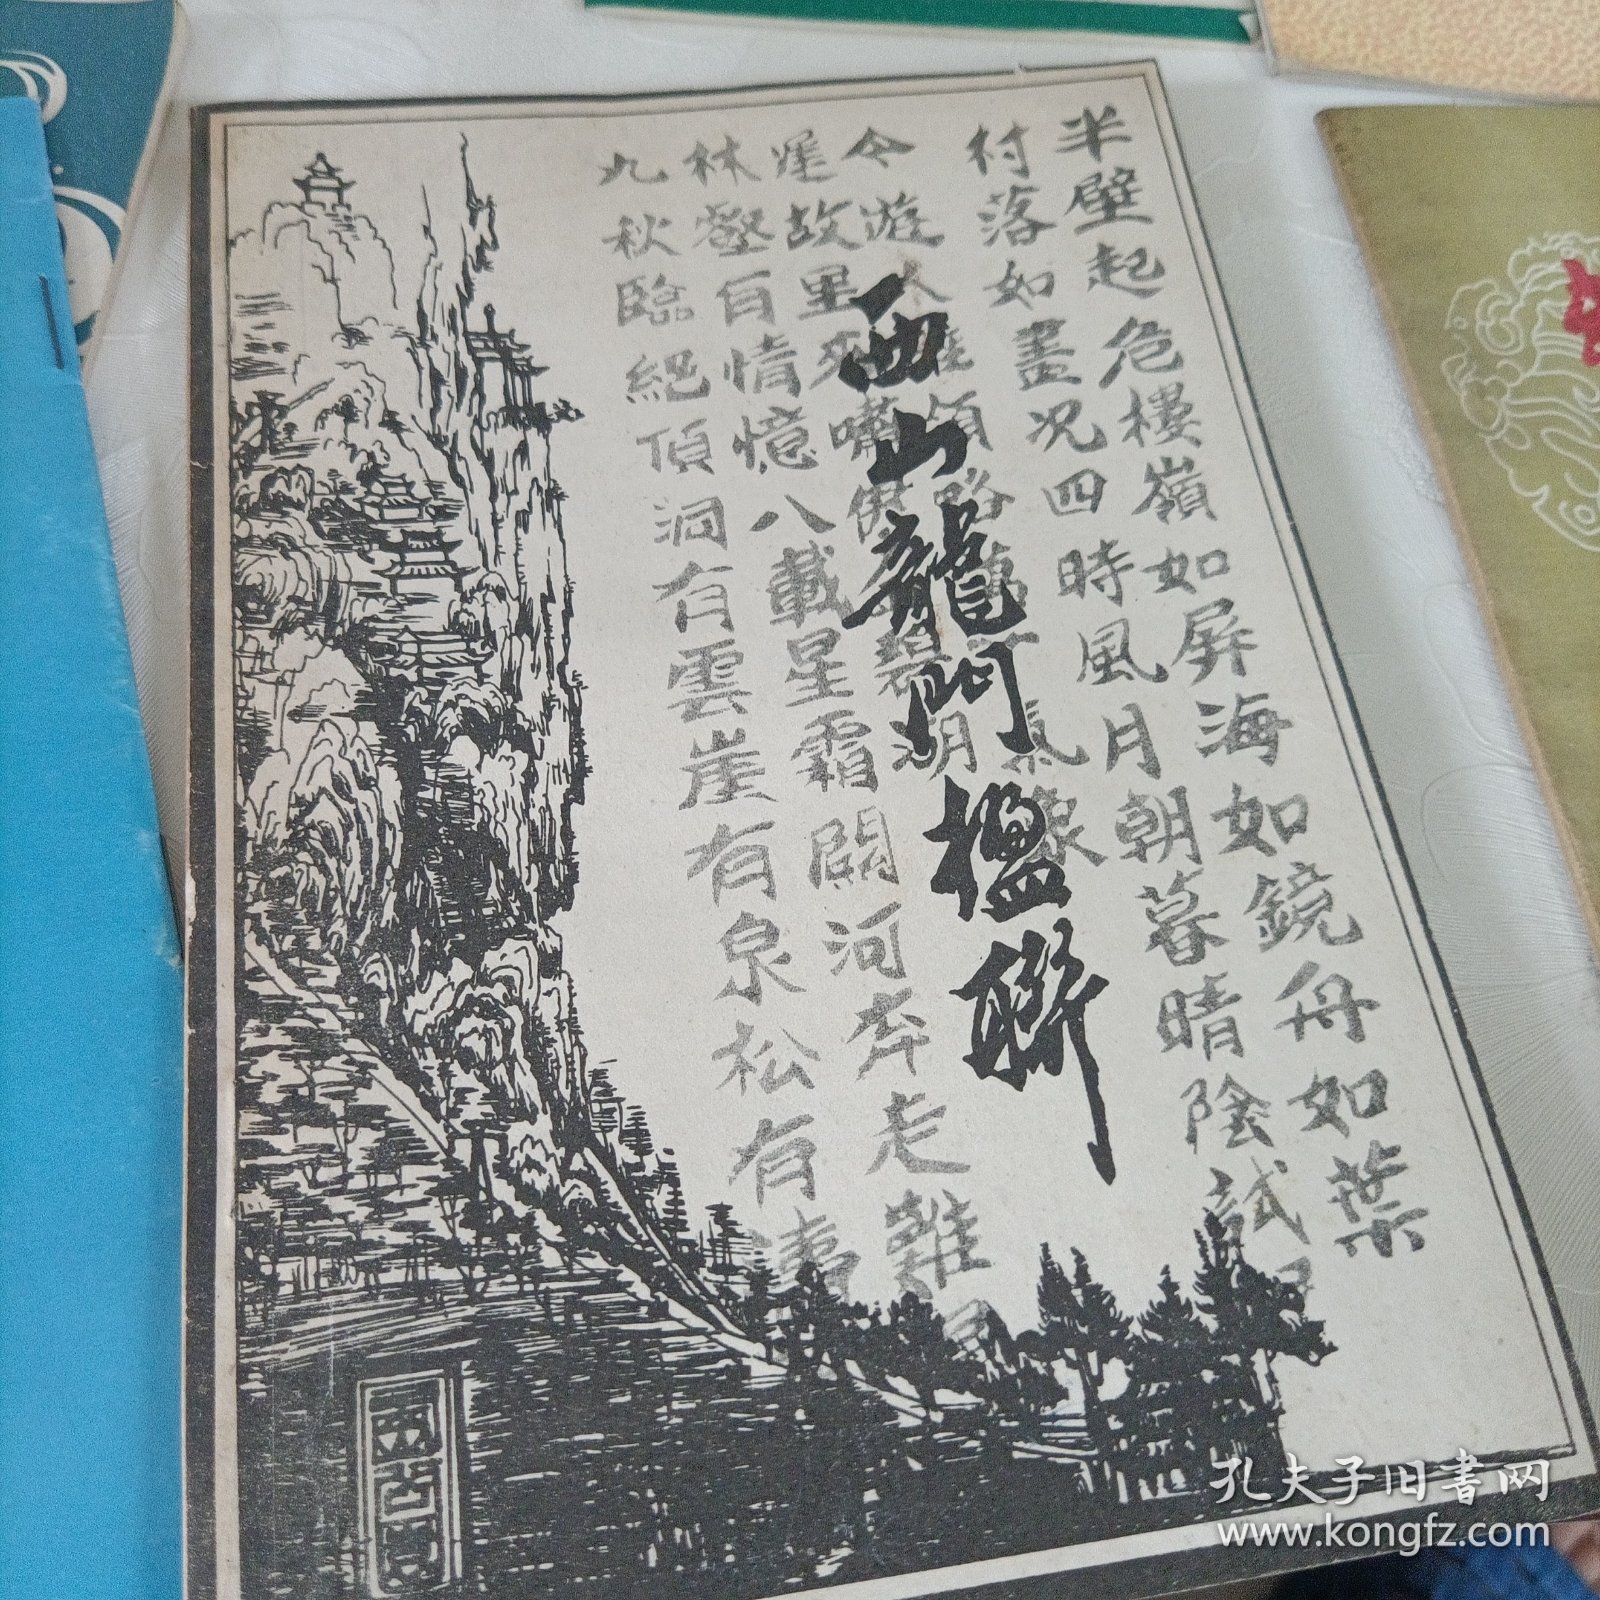 西山龍門楹聯
半壁起危樓嶺如屏海如鏡舟如葉
村落如畫况四時風月朝暮晴陰試
今遊人誰領略萬千氣象
九秋臨絕頂洞有雲崖有泉松有濤
林壑有情憶八載星霜關河奔走難
遲故里來嘯傲碧湖
孔夫子旧书网
www.kongfz.com